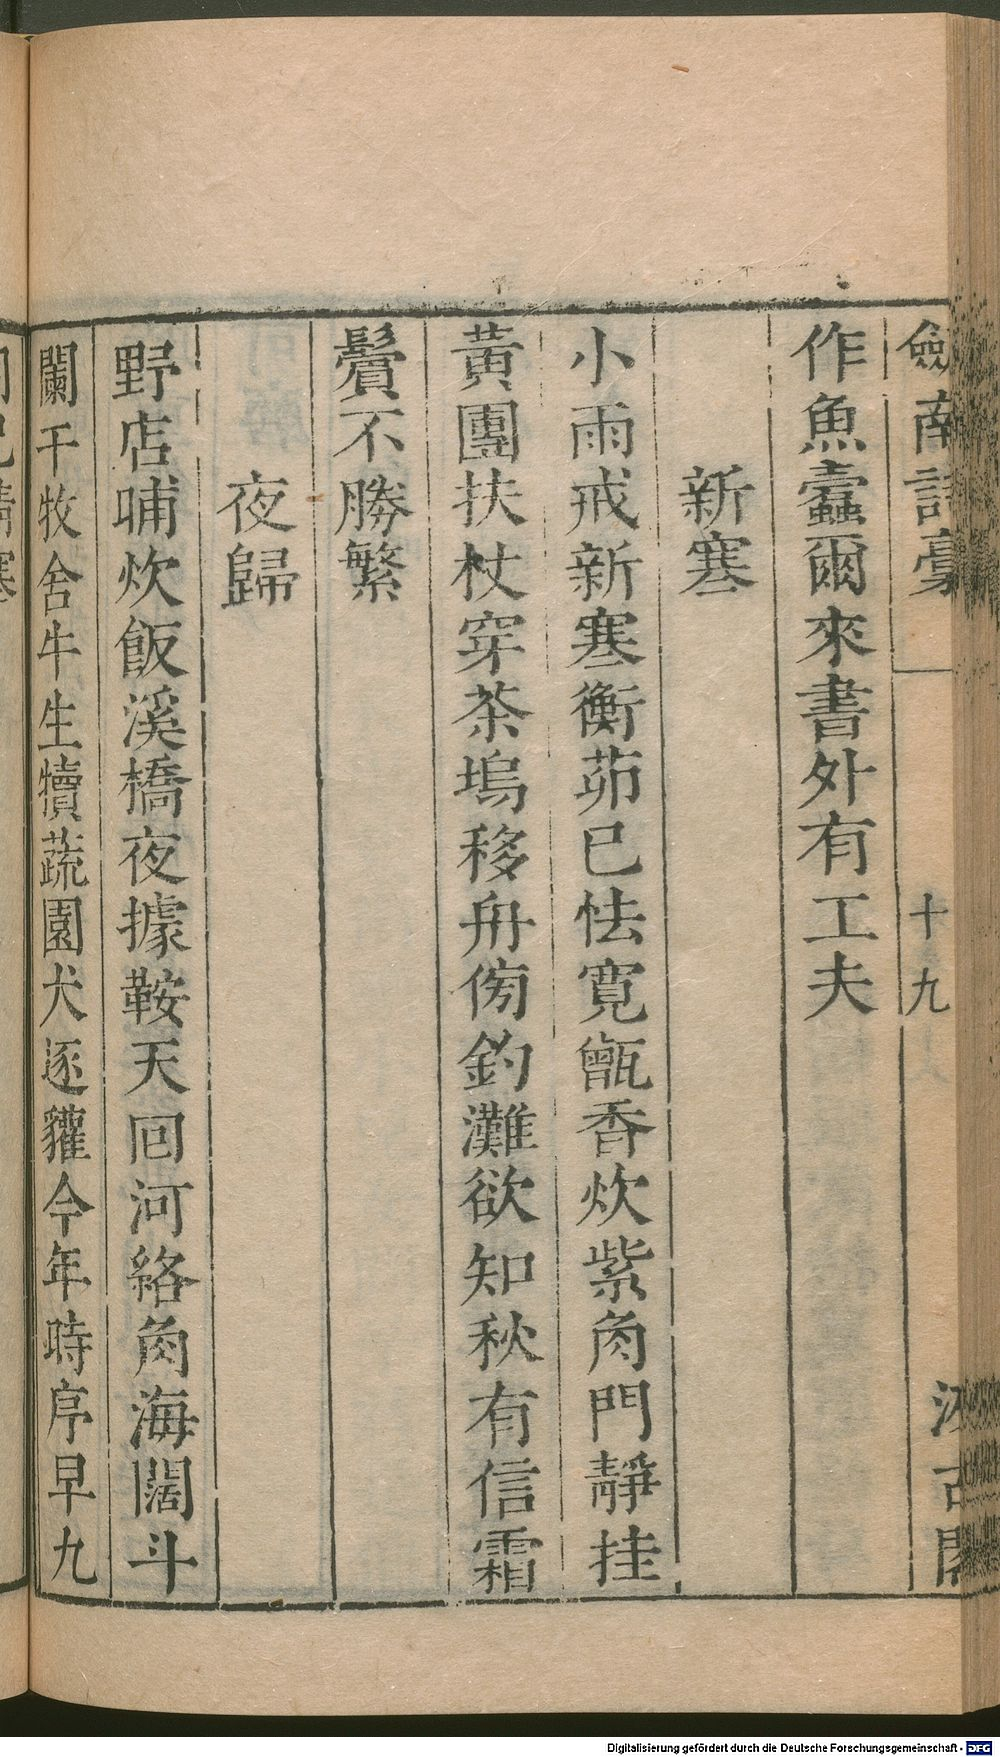 劍南詩稾 十九 汲古閣
作魚蠹爾來書外有工夫
新寒
小雨戒新寒衡茆已怯寛甑香炊紫角門靜挂
黃團扶杖穿茶塢移舟傍釣灘欲知秋有信霜
鬢不勝繁
夜歸
野店晡炊飯溪橋夜據鞍天回河絡角海闊斗
闌干牧舍牛生犢蔬園犬逐貛今年時序早九
月已淸寒
Digitalisierung gefördert durch die Deutsche Forschungsgemeinschaft - DFG